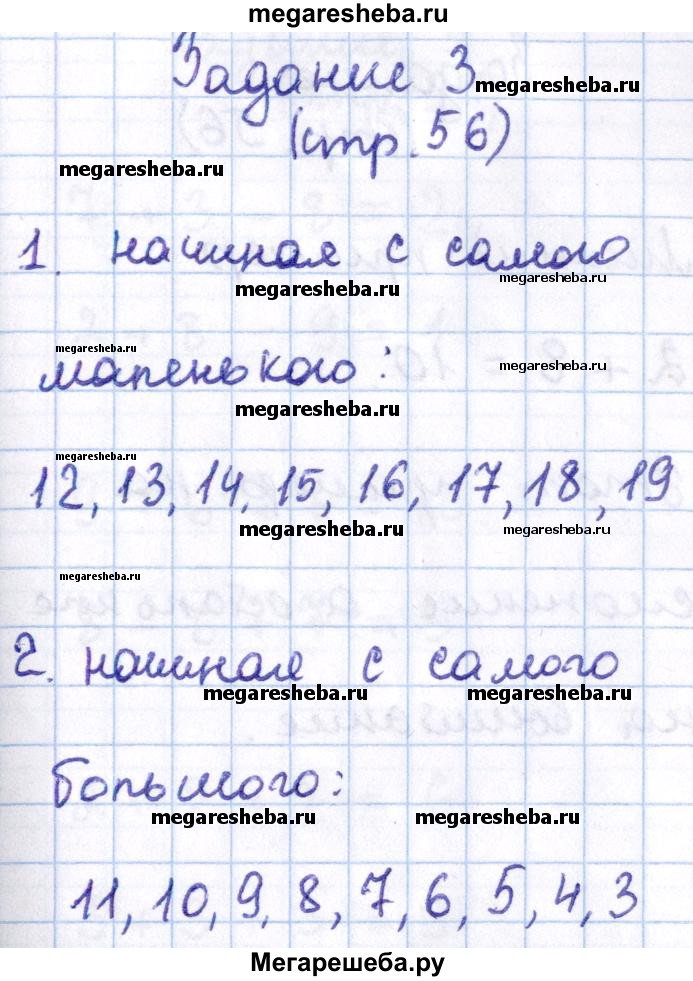 megaresheba.ru
Задание 3
megaresheba.ru
(стр. 56)
megaresheba.ru
1. начиная с самого
megaresheba.ru megaresheba.ru
megaresheba.ru
маленького:
megaresheba.ru
megaresheba.ru
megaresheba.ru
12, 13, 14, 15, 16, 17, 18, 19
megaresheba.ru megaresheba.ru
megaresheba.ru
2. начиная с самого
megaresheba.ru megaresheba.ru
большого:
megaresheba.ru megaresheba.ru
11, 10, 9, 8, 7, 6, 5, 4, 3
Мегарешеба.ру